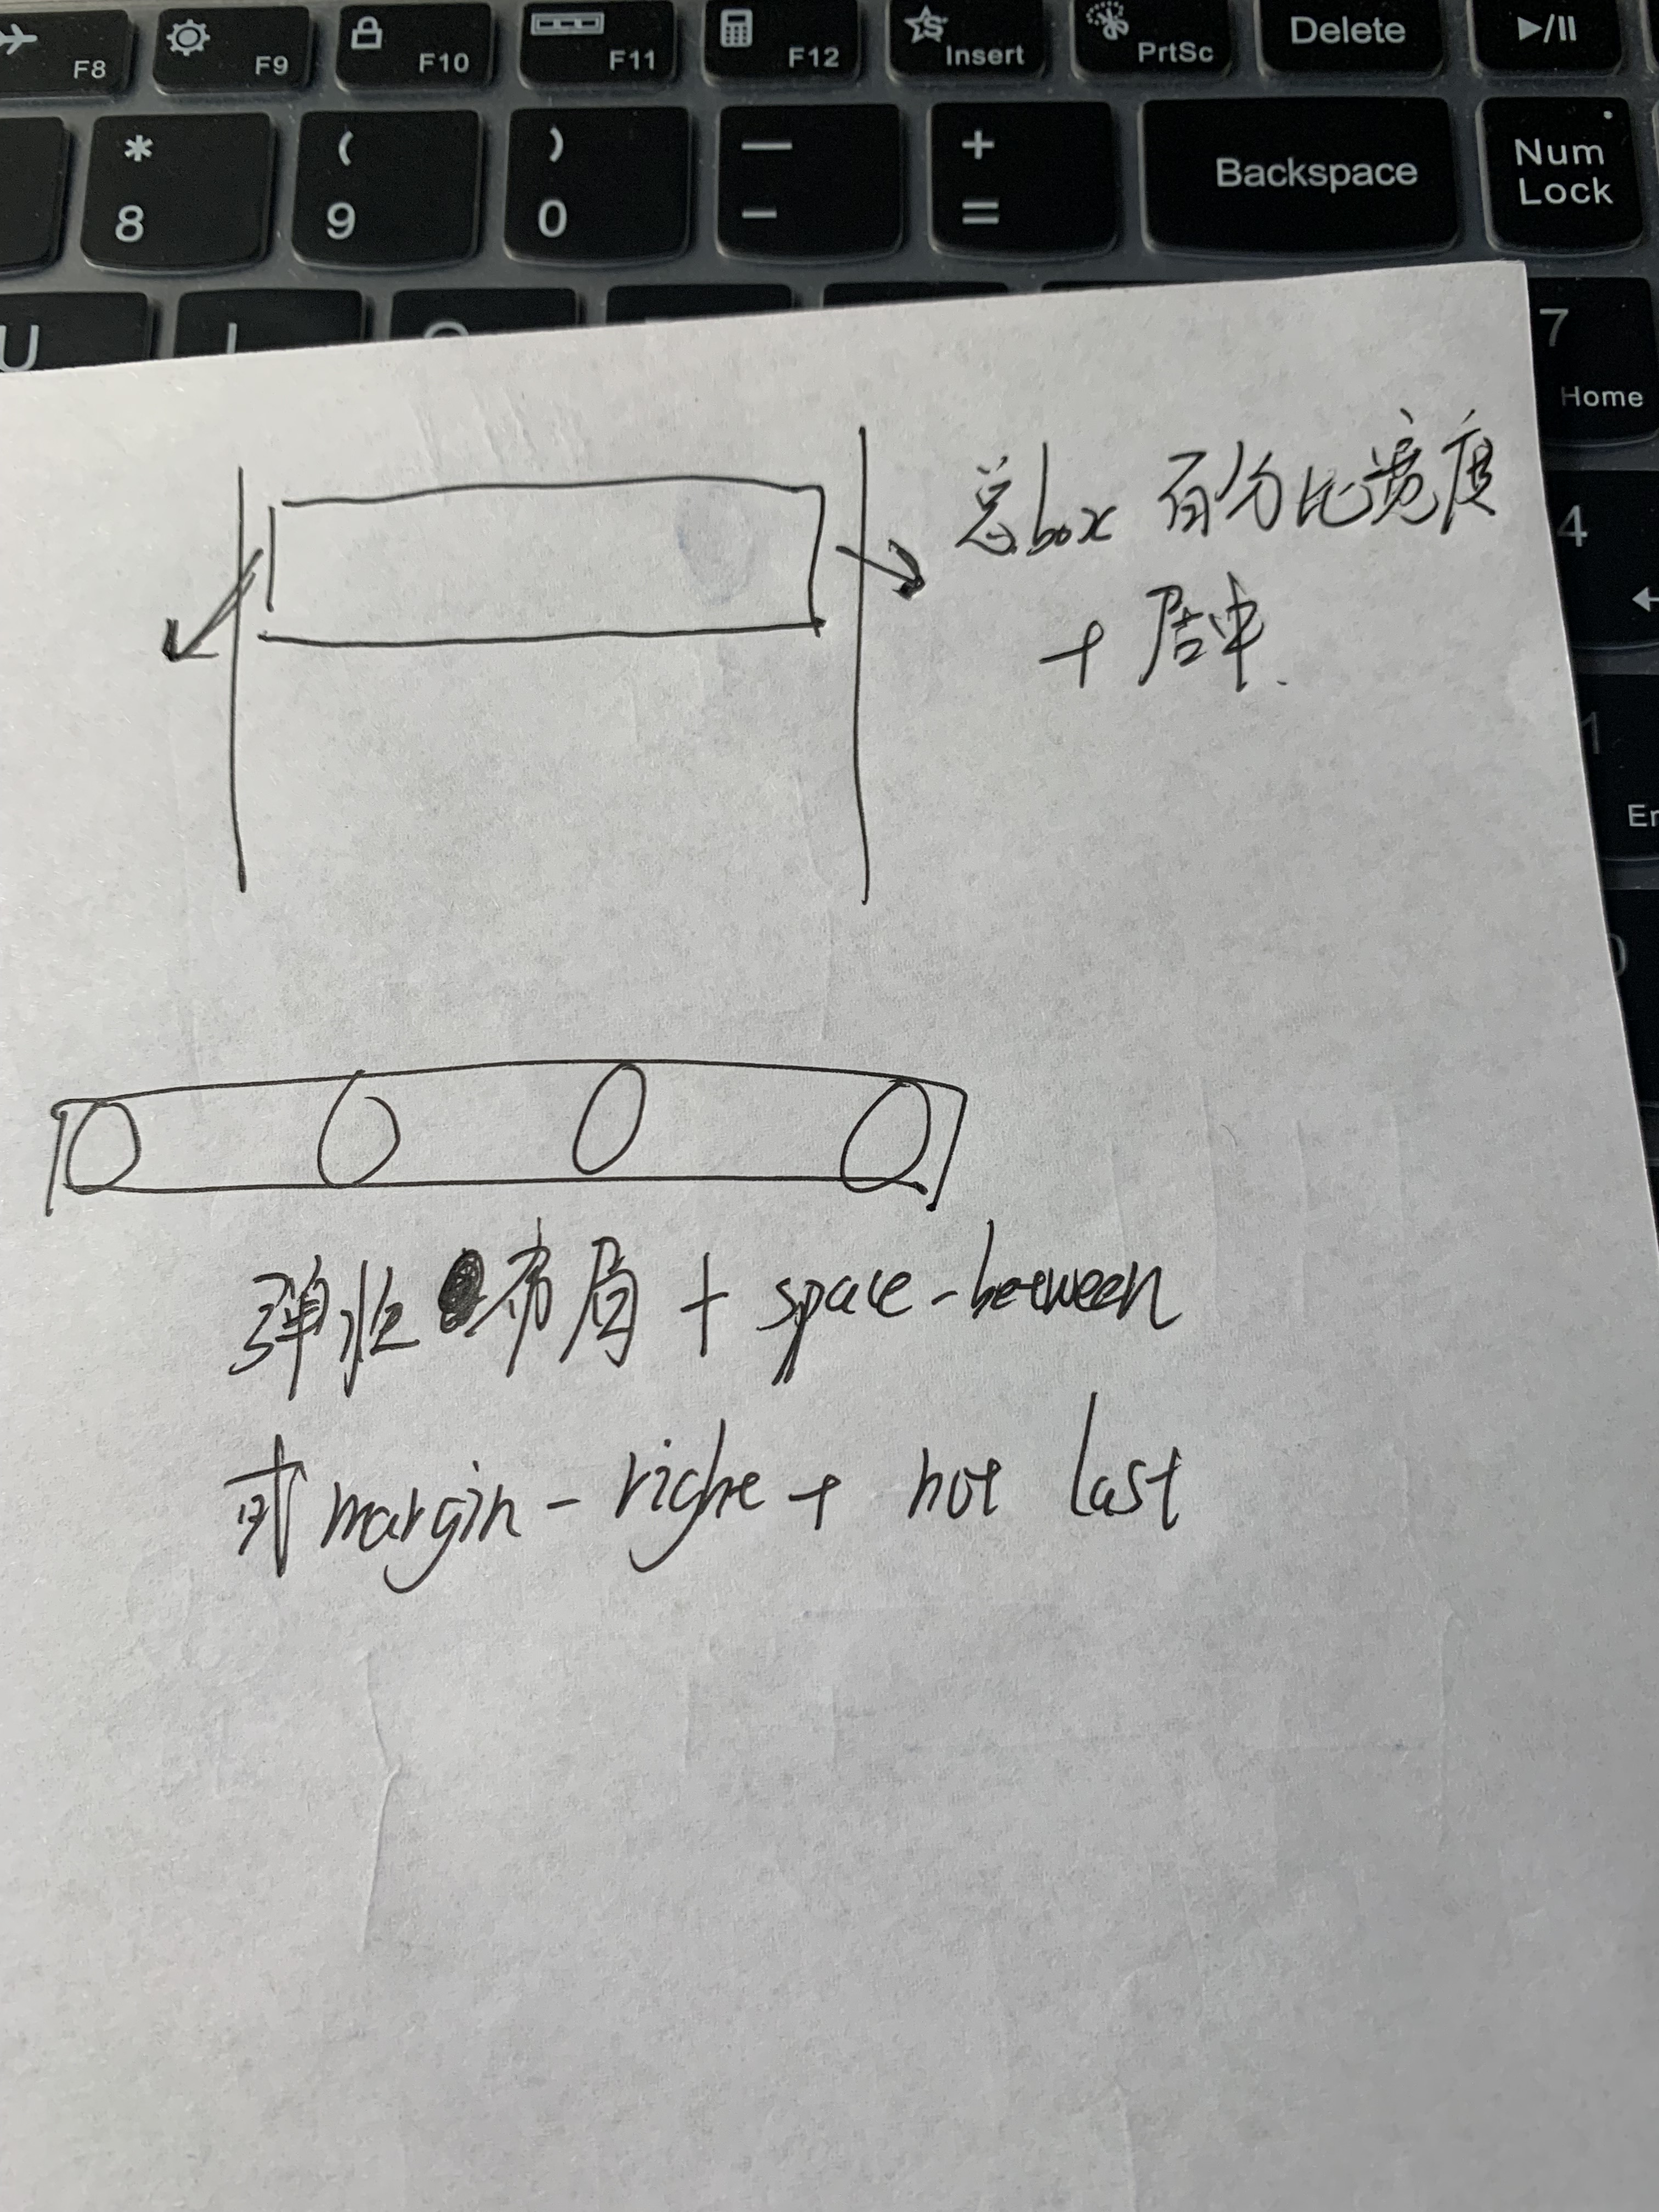 F8 F9 F10 F11 F12 Insert PrtSc Delete
* ( ) — + Backspace Num
8 9 0 - = Lock
U
7
Home
4
1
总box 百分比宽度
+ 居中
弹性 布局 + space-between
或 margin-right + not last